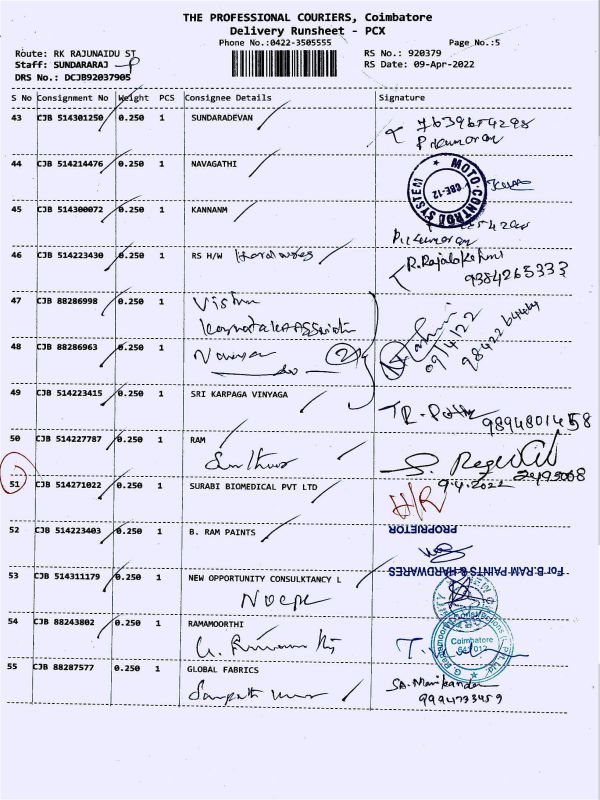 THE PROFESSIONAL COURIERS, Coimbatore
Delivery Runsheet - PCX
Phone No.:0422-3505555 Page No.:5
Route: RK RAJUNAIDU ST RS No.: 920379
Staff: SUNDARARAJ RS Date: 09-Apr-2022
DRS No.: DCJB92037905
S No Consignment No Weight PCS Consignee Details Signature
43 CJB 514301250 0.250 1 SUNDARADEVAN
44 CJB 514214476 0.250 1 NAVAGATHI
MOTO-CONTROL SYSTEM
CBE-12
45 CJB 514300072 0.250 1 KANNANM
46 CJB 514223430 0.250 1 RS H/W Hardwares R. Rajalakshmi
9384265333
47 CJB 88286998 0.250 1
09/4/22
48 CJB 88286963 0.250 1
49 CJB 514223415 0.250 1 SRI KARPAGA VINYAGA
50 CJB 514227787 0.250 1 RAM
9.4.2022
51 CJB 514271022 0.250 1 SURABI BIOMEDICAL PVT LTD H/R
52 CJB 514223403 0.250 1 B. RAM PAINTS PROPRIETOR
For B.RAM PAINTS & HARDWARES
53 CJB 514311179 0.250 1 NEW OPPORTUNITY CONSULKTANCY L
54 CJB 88243802 0.250 1 RAMAMOORTHI
Coimbatore
641 012
55 CJB 88287577 0.250 1 GLOBAL FABRICS
SA. Manikandan
9994733459